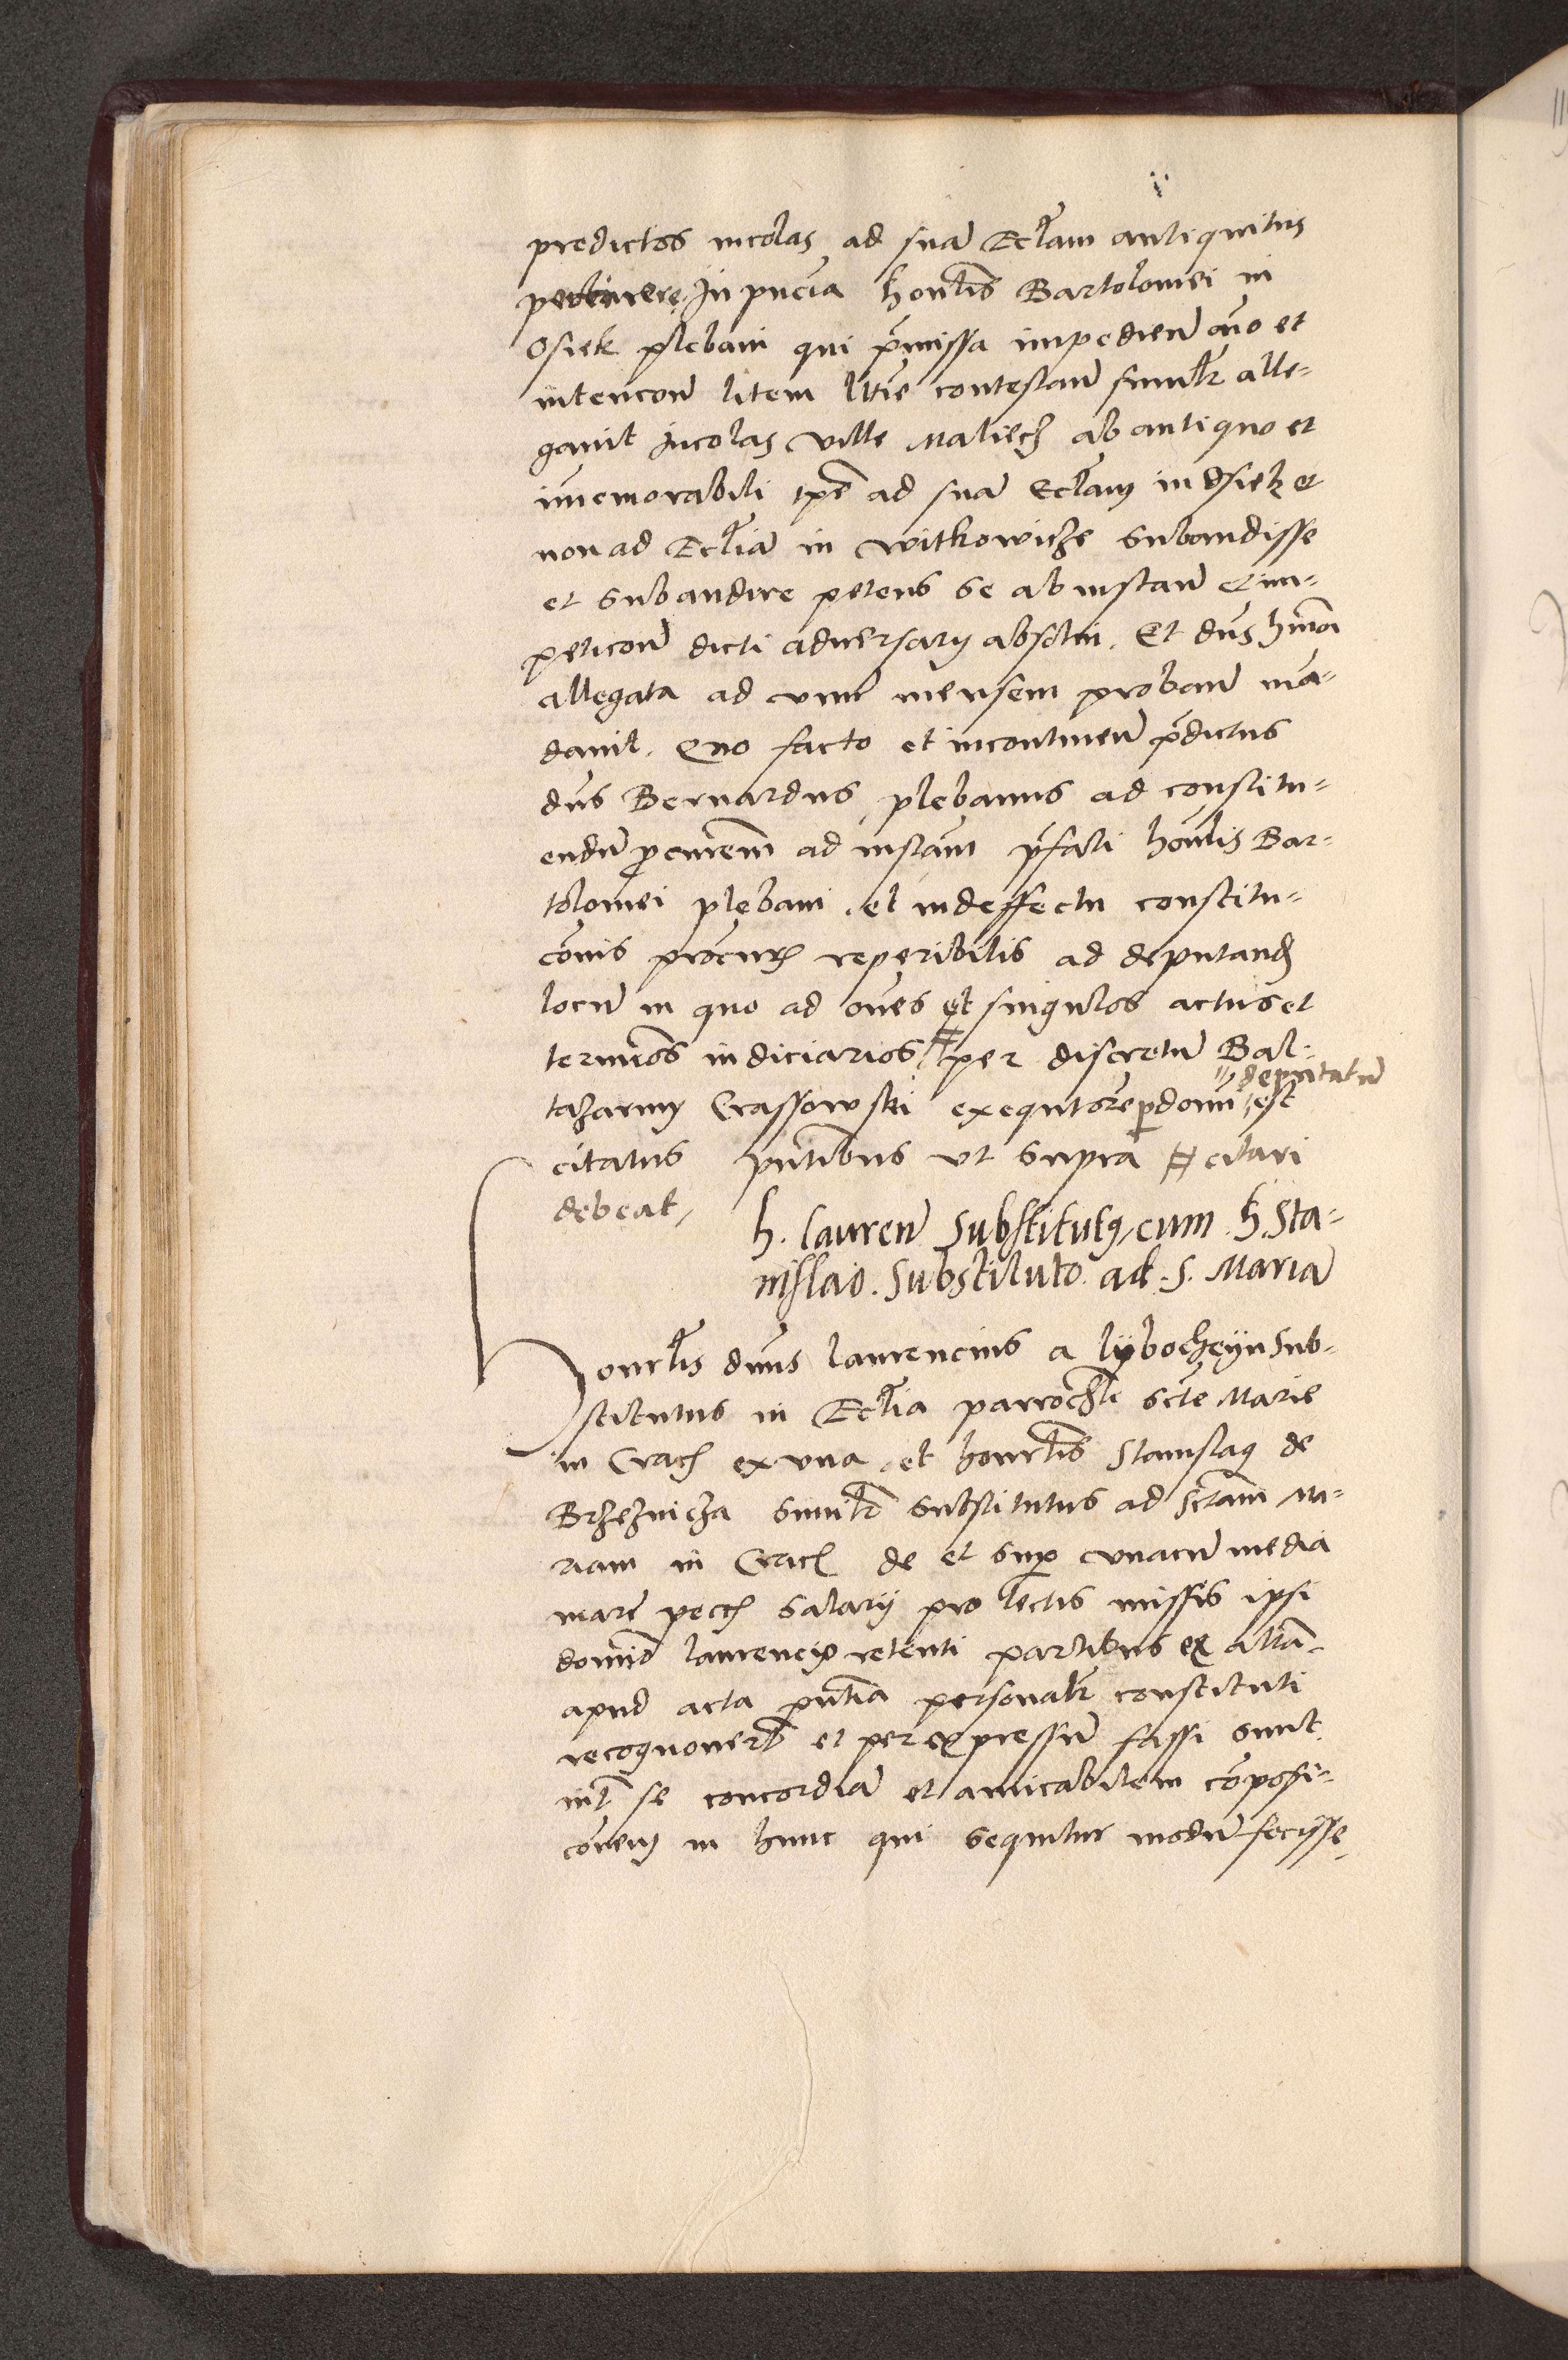 predictos incolas ad suā Ecl̄iam antiquitus
pertinere. In pn̄cia honl̄is Bartolomei in
Osiek plebani qui p̄missa impedien̄ aīo et
intencōn̄ litem ll̄tīe contestan̄ simil̄r alle-
gavit Incolas ville Maliecz ab antiquo et
im̄emorabili tp̄e ad suā Ecl̄iam in Osiek et
non ad Ecl̄iā in Witkowicze subaudisse
et subaudire petens se ab instan̄ et im-
peticōn̄ dicti adversarij absolvi. Et dn̄s hm̄oi
allegata ad unū mensem proban̄ mā-
davit. Quo facto et incontinen̄ p̄dictus
dn̄s Bernardus plebanus ad constitu-
endū ad instān̄ p̄fati honl̄is Bar-
tolomei plebani et in deffectu constitu-
cōnis procur̄ reperibilis ad deputand̄
locū in quo ad om̄es et singulos actus et
termīos iudiciarios # per discretū Bal-
"deputatū
tazarum Crassowski exequtorē p domū est
citatus pn̄tibus ut supra # citari
debeat,
h. Lauren̄ Substitutus cum h. Sta-
nislao. Substituto. ad. S. Mariā
Honrl̄is dn̄us Laurencius a Lyboczeyn Sub-
stitutus in Ecl̄ia parroch̄li sct̄e Marie
in Crac̄ ex una et honrl̄is Stanislaus de
Brzeznicza simil̄r substitutus ad Sctām Ma-
riam in Crac̄ de et sup̄ unacū media
mar̄ pecc̄ salarij pro lectis missis ipsi
domīo Laurencio retenti partibus ex altā
apud acta pn̄tia personal̄r constituti
recognoverūt et per expressū fassi sunt
int̄ se concordiā et amicabilem cōposi-
cōnem in hunc qui sequitur modū fecisse